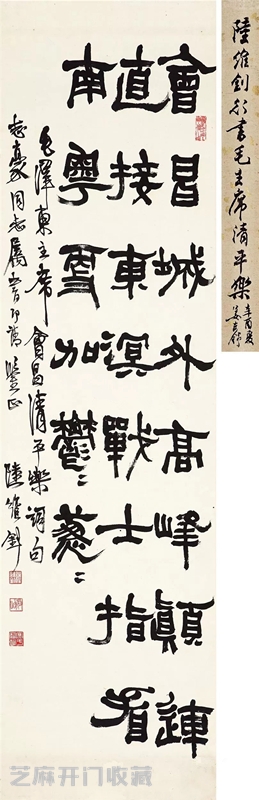 陸維釗行書毛主席清平樂
辛酉夏
會昌城外高峰顛連
直接東溟戰士指看
南粵更加鬱〻蔥〻
毛澤東主席會昌清平樂詞句
志豪同志屬書即請鑒正 陸維釗
芝麻开门收藏